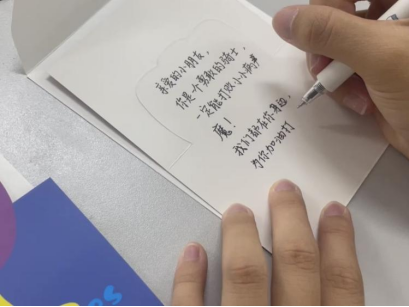 亲爱的小朋友，
你是一个勇敢的骑士，
一定能打败小小病
魔！
我们都在你身边，
为你加油打